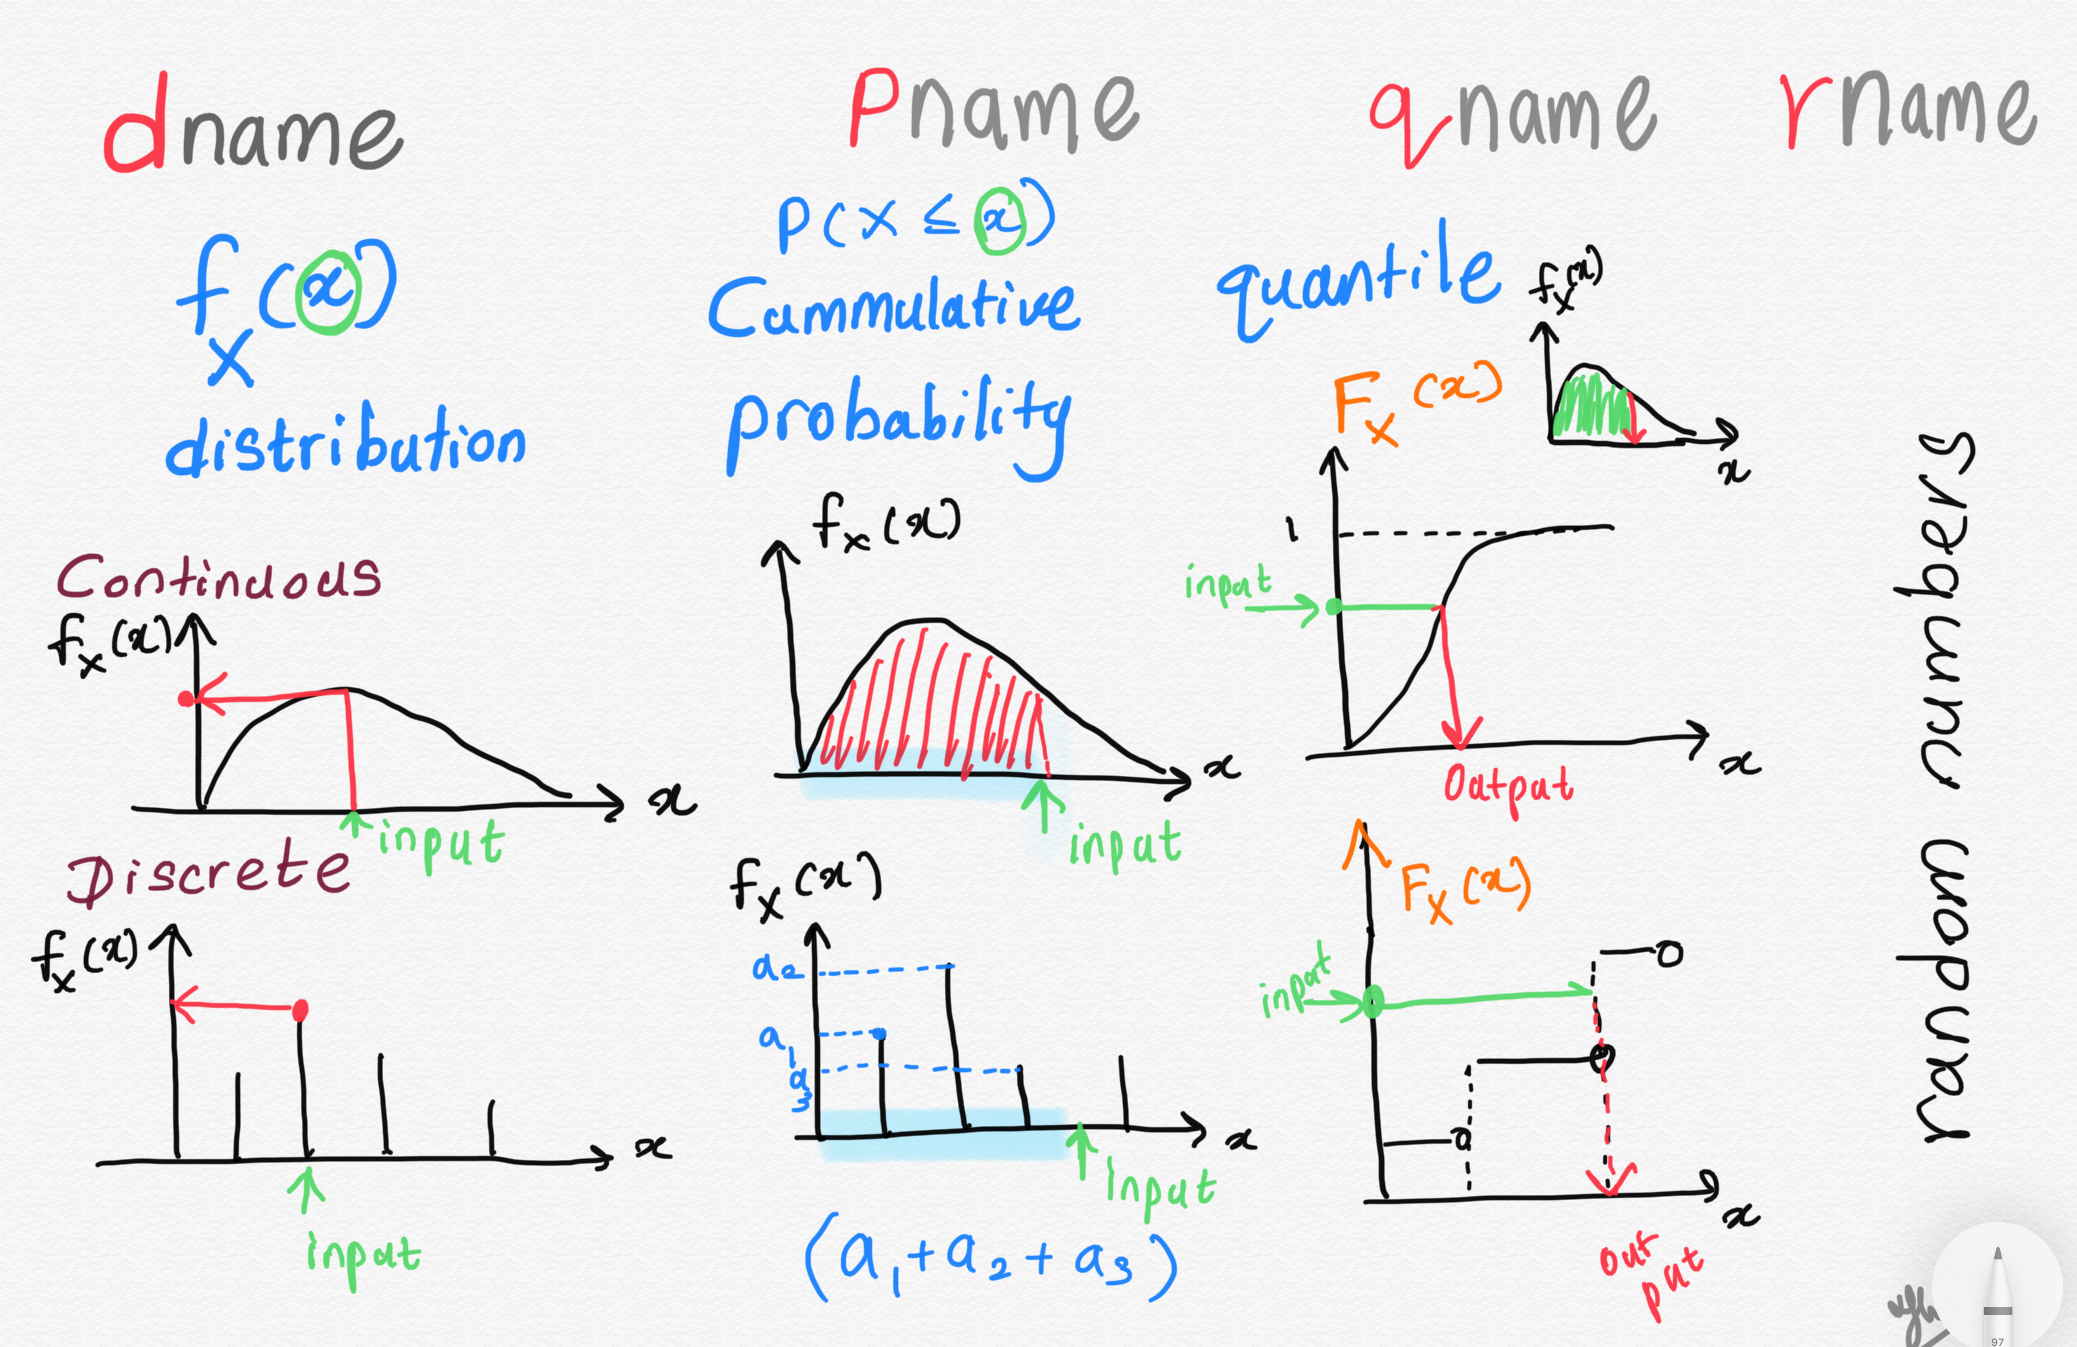 dname
f_X(x)
distribution
Continuous
f_X(x)
x
input
Discrete
f_X(x)
x
input
Pname
P(X ≤ x)
Cummulative
probability
f_X(x)
x
input
f_X(x)
a_2
a_1
a_3
x
input
(a_1 + a_2 + a_3)
qname
quantile
f_X(x)
x
F_X(x)
1
input
x
Output
F_X(x)
input
x
out
put
rname
random numbers
97